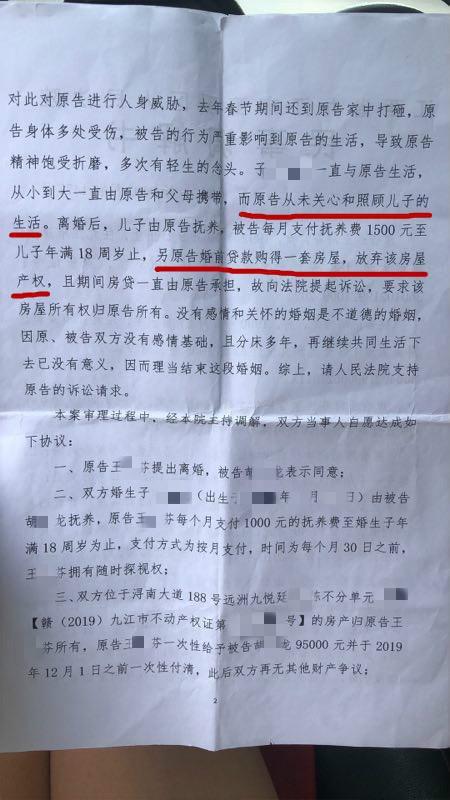 对此对原告进行人身威胁，去年春节期间还到原告家中打砸，原
告身体多处受伤，被告的行为严重影响到原告的生活，导致原告
精神饱受折磨，多次有轻生的念头。子 一直与原告生活，
从小到大一直由原告和父母携带，而原告从未关心和照顾儿子的
生活。离婚后，儿子由原告抚养，被告每月支付抚养费 1500 元至
儿子年满 18 周岁止，另原告婚前贷款购得一套房屋，放弃该房屋
产权，且期间房贷一直由原告承担，故向法院提起诉讼，要求该
房屋所有权归原告所有。没有感情和关怀的婚姻是不道德的婚姻，
因原、被告双方没有感情基础，且分床多年，再继续共同生活下
去已没有意义，因而理当结束这段婚姻。综上，请人民法院支持
原告的诉讼请求。
本案审理过程中，经本院主持调解，双方当事人自愿达成如
下协议：
一、原告王 芬提出离婚，被告胡 龙表示同意；
二、双方婚生子 （出生于 年 月 日）由被告
胡 龙抚养，原告王 芬每个月支付 1000 元的抚养费至婚生子年
满 18 周岁为止，支付方式为按月支付，时间为每个月 30 日之前，
王 芬拥有随时探视权；
三、双方位于浔南大道 188 号远洲九悦廷 栋不分单元
【赣（2019）九江市不动产权证第 号】的房产归原告王
芬所有，原告王 芬一次性给予被告胡 龙 95000 元并于 2019
年 12 月 1 日之前一次性付清，此后双方再无其他财产争议；
2